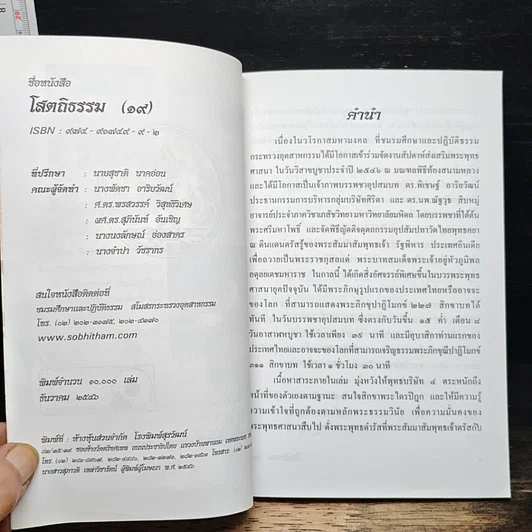 ชื่อหนังสือ
โสตถิธรรม (๑๙)
ISBN : ๙๗๔ - ๙๑๗๔๙ - ๙ - ๒
ที่ปรึกษา : นายสุชาติ นาคอ่อน
คณะผู้จัดทำ : นางพัดชา อาริยวัฒน์
: ศ.ดร.พรสวรรค์ วิสุทธิวิเศษ
: ผศ.ดร.สุมีนันท์ อันเชิญ
: นางนงลักษณ์ อ่องสาคร
: นางจำปา วัชรากร
สนใจหนังสือติดต่อที่
ชมรมศึกษาและปฏิบัติธรรม สโมสรกระทรวงอุตสาหกรรม
โทร. (๐๒)
www.sobhitham.com
พิมพ์จำนวน ๑๐,๐๐๐ เล่ม
ธันวาคม ๒๕๔๖
พิมพ์ที่ : ห้างหุ้นส่วนจำกัด โรงพิมพ์สุรวัฒน์
คำนำ
เนื่องในวโรกาสมหามงคล ที่ชมรมศึกษาและปฏิบัติธรรม
กระทรวงอุตสาหกรรมได้มีโอกาสเข้าร่วมจัดงานสัปดาห์ส่งเสริมพระพุทธ
ศาสนา ในวันวิสาขบูชาประจำปี ๒๕๔๖ ณ มณฑลพิธีท้องสนามหลวง
และได้มีโอกาสเป็นเจ้าภาพบรรพชาอุปสมบท ดร.พิเชษฐ์ อาริยวัฒน์
ประธานกรรมการบริหารกลุ่มบริษัทศิริดา และ ดร.นพ.ณัฐวุธ สิบหมู่
อาจารย์ประจำภาควิชาเภสัชวิทยามหาวิทยาลัยมหิดล โดยบรรพชาที่ใต้ต้น
พระศรีมหาโพธิ์ และจัดพิธีญัตติจตุตถกรรมอุปสมบทที่วัดไทยพุทธคยา
ณ ดินแดนตรัสรู้ของพระสัมมาสัมพุทธเจ้า รัฐพิหาร ประเทศอินเดีย
เพื่อถวายเป็นพระราชกุศลแด่ พระบาทสมเด็จพระเจ้าอยู่หัวภูมิพล
อดุลยเดชมหาราช ในกาลนี้ ได้เกิดสิ่งอัศจรรย์พิเศษขึ้นในบวรพระพุทธ
ศาสนายุคปัจจุบัน ได้มีพระภิกษุรูปแรกของประเทศไทยหรืออาจจะ
ของโลก ที่สามารถแสดงพระภิกขุปาฏิโมกข์ ๒๒๗ สิกขาบทได้
ทันที ในวันบรรพชาอุปสมบท ซึ่งตรงกับวันขึ้น ๑๕ ค่ำ เดือน ๘
วันอาสาฬหบูชา ใช้เวลาเพียง ๓๙ นาที และมีอุบาสิกาท่านแรกของ
ประเทศไทยและอาจจะของโลกที่สามารถเจริญธรรมพระภิกขุณีปาฏิโมกข์
๓๑๑ สิกขาบท ใช้เวลา ๑ ชั่วโมง ๓๐ นาที
เนื้อหาสาระภายในเล่ม มุ่งหวังให้พุทธบริษัท ๔ ตระหนักถึง
หน้าที่ของตัวเองตามฐานะ สนใจสิกขาพระไตรปิฎก และให้มีความรู้
ความเข้าใจที่ถูกต้องตามหลักพระธรรมวินัย เพื่อความมั่นคงของ
พระพุทธศาสนาสืบไป ดั่งพระพุทธดำรัสที่พระสัมมาสัมพุทธเจ้าตรัสกับ